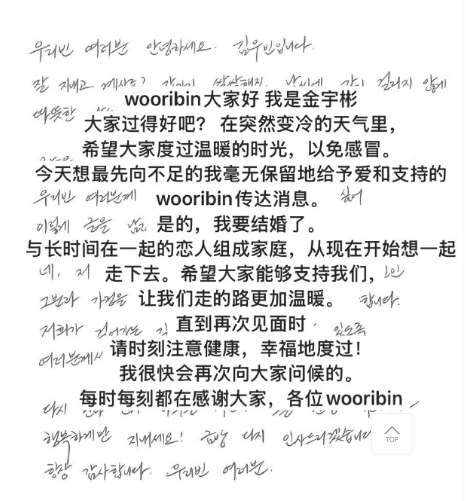 우리빈 여러분 안녕하세요. 김우빈입니다.
잘 지내고 계시죠?
wooribin大家好 我是金宇彬
따뜻한
大家过得好吧？ 在突然变冷的天气里，
希望大家度过温暖的时光，以免感冒。
今天想最先向不足的我毫无保留地给予爱和支持的
우리빈 여러분께 wooribin传达消息。
이렇게 글을 是的，我要结婚了。
与长时间在一起的恋人组成家庭，从现在开始想一起
네, 저 走下去。希望大家能够支持我们，
그분과 가정을 让我们走的路更加温暖。 합니다.
저희가 걸어가는 길 直到再次见面时 있도록
여러분께서 请时刻注意健康，幸福地度过！
我很快会再次向大家问候的。
每时每刻都在感谢大家，各位wooribin
다시
행복하게만 지내세요! 금방 다시 인사드리겠습니다
TOP
항상 감사합니다. 우리빈 여러분.